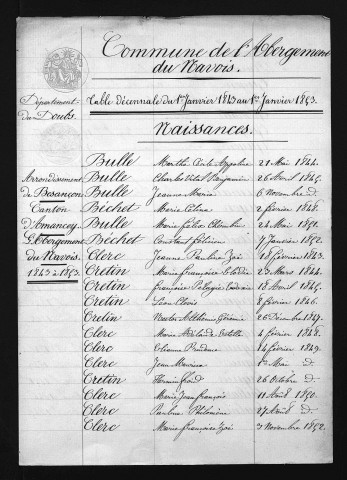 Commune de l'Abergement
du Navois.
Département
du Doubs
Table décennale du 1er Janvier 1843 au 1er Janvier 1853.
Naissances.
Arrondissement
de Besançon
Canton
d'Amancey
L'Abergement
du Navois.
1843 à 1853.
Bulle Marthe Appoline 21 Mai 1844.
Bulle Charles Vital Benjamin 26 Avril 1845.
Bulle Jeanne Marie 6 Novembre d°
Béchet Marie Célina 2 février 1848.
Bulle Marie Félix 28 Mai 1851.
Béchet Constant félicien 7 Janvier 1852.
Clerc Jeanne Pauline Zoé 18 février 1843.
Cretin Marie françoise 23 Mars 1844.
Cretin françoise Pélagie 18 Avril 1845.
Cretin Léon Clovis 8 février 1846.
Cretin 26 Décembre 1847.
Clerc Marie 4 février 1848.
Clerc Prudence 14 février 1849.
Clerc Jean Maurice Mai d°
Cretin 26 Octobre d°
Clerc Marie Jean françois 11 Août 1850.
Clerc Pauline Philomène 27 Août d°
Clerc Marie françoise Zoé 3 Novembre 1852.